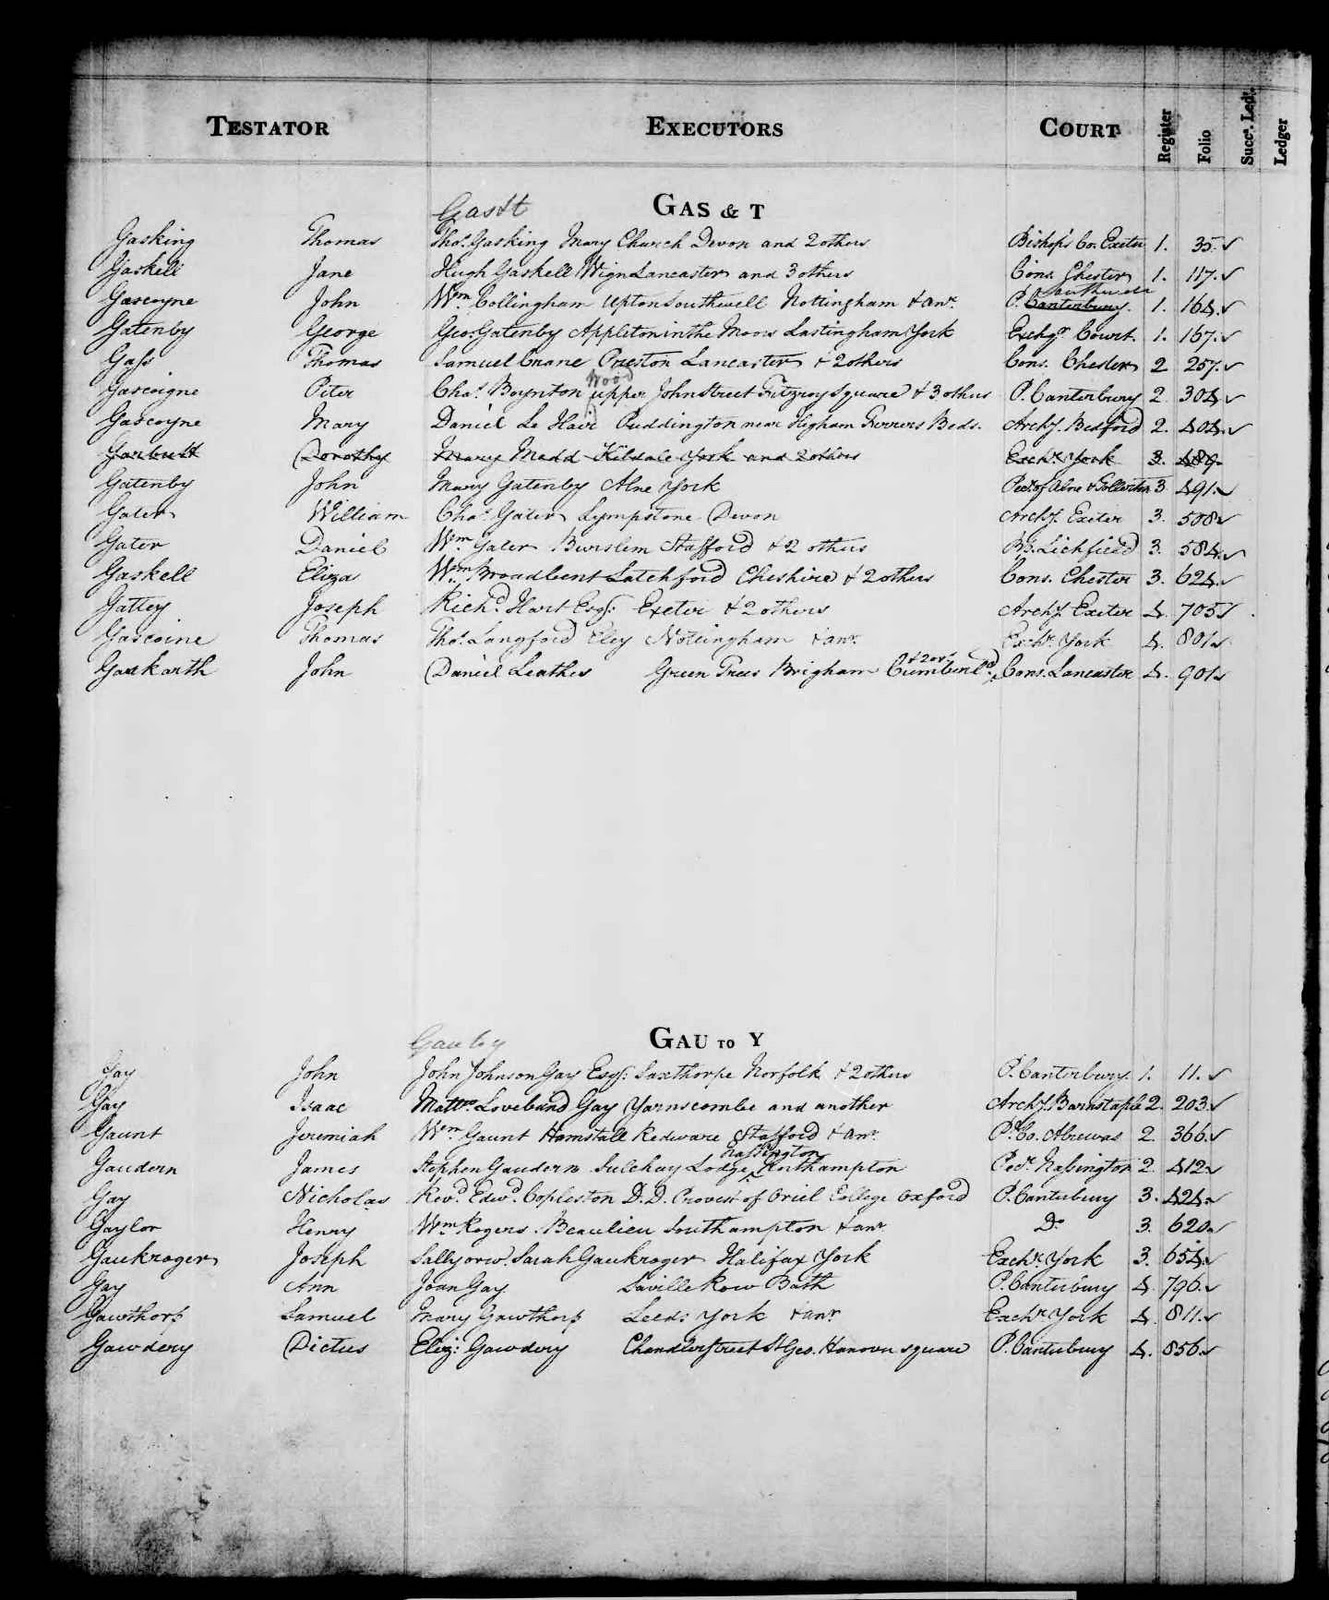 TESTATOR EXECUTORS COURT Register Folio Succn. Ledr. Ledger
Gas & t GAS & T
Gasking Thomas Thos. Gasking Mary Church Devon and 2 others Bishops Co. Exeter 1. 35.
Gaskell Jane Hugh Gaskell Wign Lancaster and 3 others Cons. Chester 1. 117.
Gascoyne John Wm. Collingham Upton Southwell Nottingham & anr. P. Canterbury 1. 164.
Gatenby George Geo. Gatenby Appleton in the Moors Lastingham York Exchqr. Court. 1. 167.
Gass Thomas Samuel Crane Preston Lancaster & 2 others Cons. Chester 2 257.
Gascoigne Peter Chas. Boynton Wood upper John Street Fitzroy Square & 3 others P. Canterbury 2 304
Gascoyne Mary Daniel Le Puddington near Higham Ferrers Beds. Archy. Bedford 2. 404.
Dorothy Mary Madd Kildale York and 2 others Exchr. York 3. 489.
Gatenby John Mary Gatenby Alne York Pecr. of Alne & Tollerton 3 491.
Gater William Chas. Gater Lympstone Devon Archy. Exeter 3. 508
Gater Daniel Wm. Gater Burslem Stafford & 2 others Bp. Lichfield 3. 584.
Gaskell Eliza Wm. Broadbent Latchford Cheshire & 2 others Cons. Chester 3. 624.
Gattey Joseph Richd. Hart Esqr. Exeter & 2 others Archy. Exeter 4. 705
Gascoine Thomas Thos. Langford Eley Nottingham & anr. Exchr. York 4. 801
Gaskarth John Daniel Leathes Green Trees Brigham Cumberld. & 2 ors. Cons. Lancaster 4. 901
Gau to y GAU TO Y
Gay John John Johnson Gay Esqr. Saxthorpe Norfolk & 2 others P. Canterbury. 1. 11.
Gay Isaac Mattw. Loveband Gay Yarnscombe and another Archy. Barnstaple 2. 203.
Gaunt Jeremiah Wm. Gaunt Hamstall Redware Stafford & anr. P. Co. Alrewas 2. 366
Gaudern James Stephen Gaudern Sulehay Lodge Nassington Northampton Pecr. Nassington 2 412
Gay Nicholas Revd. Edwd. Copleston D.D. Provost of Oriel College Oxford P. Canterbury 3. 424.
Gaylor Henry Wm. Rogers. Beaulieu Southampton & anr Do. 3. 620
Gaukroger Joseph Sally orw. Sarah Gaukroger Halifax York Exchr. York 3. 654.
Gay Ann Joan Gay Saville Row Bath P. Canterbury 4. 796.
Gawthorp Samuel Mary Gawthorp Leeds York & anr Exchr. York 4. 811.
Gawdery Dictus Eliz: Gawdery Chandler Street St. Geo. Hanover Square P. Canterbury 4. 856.